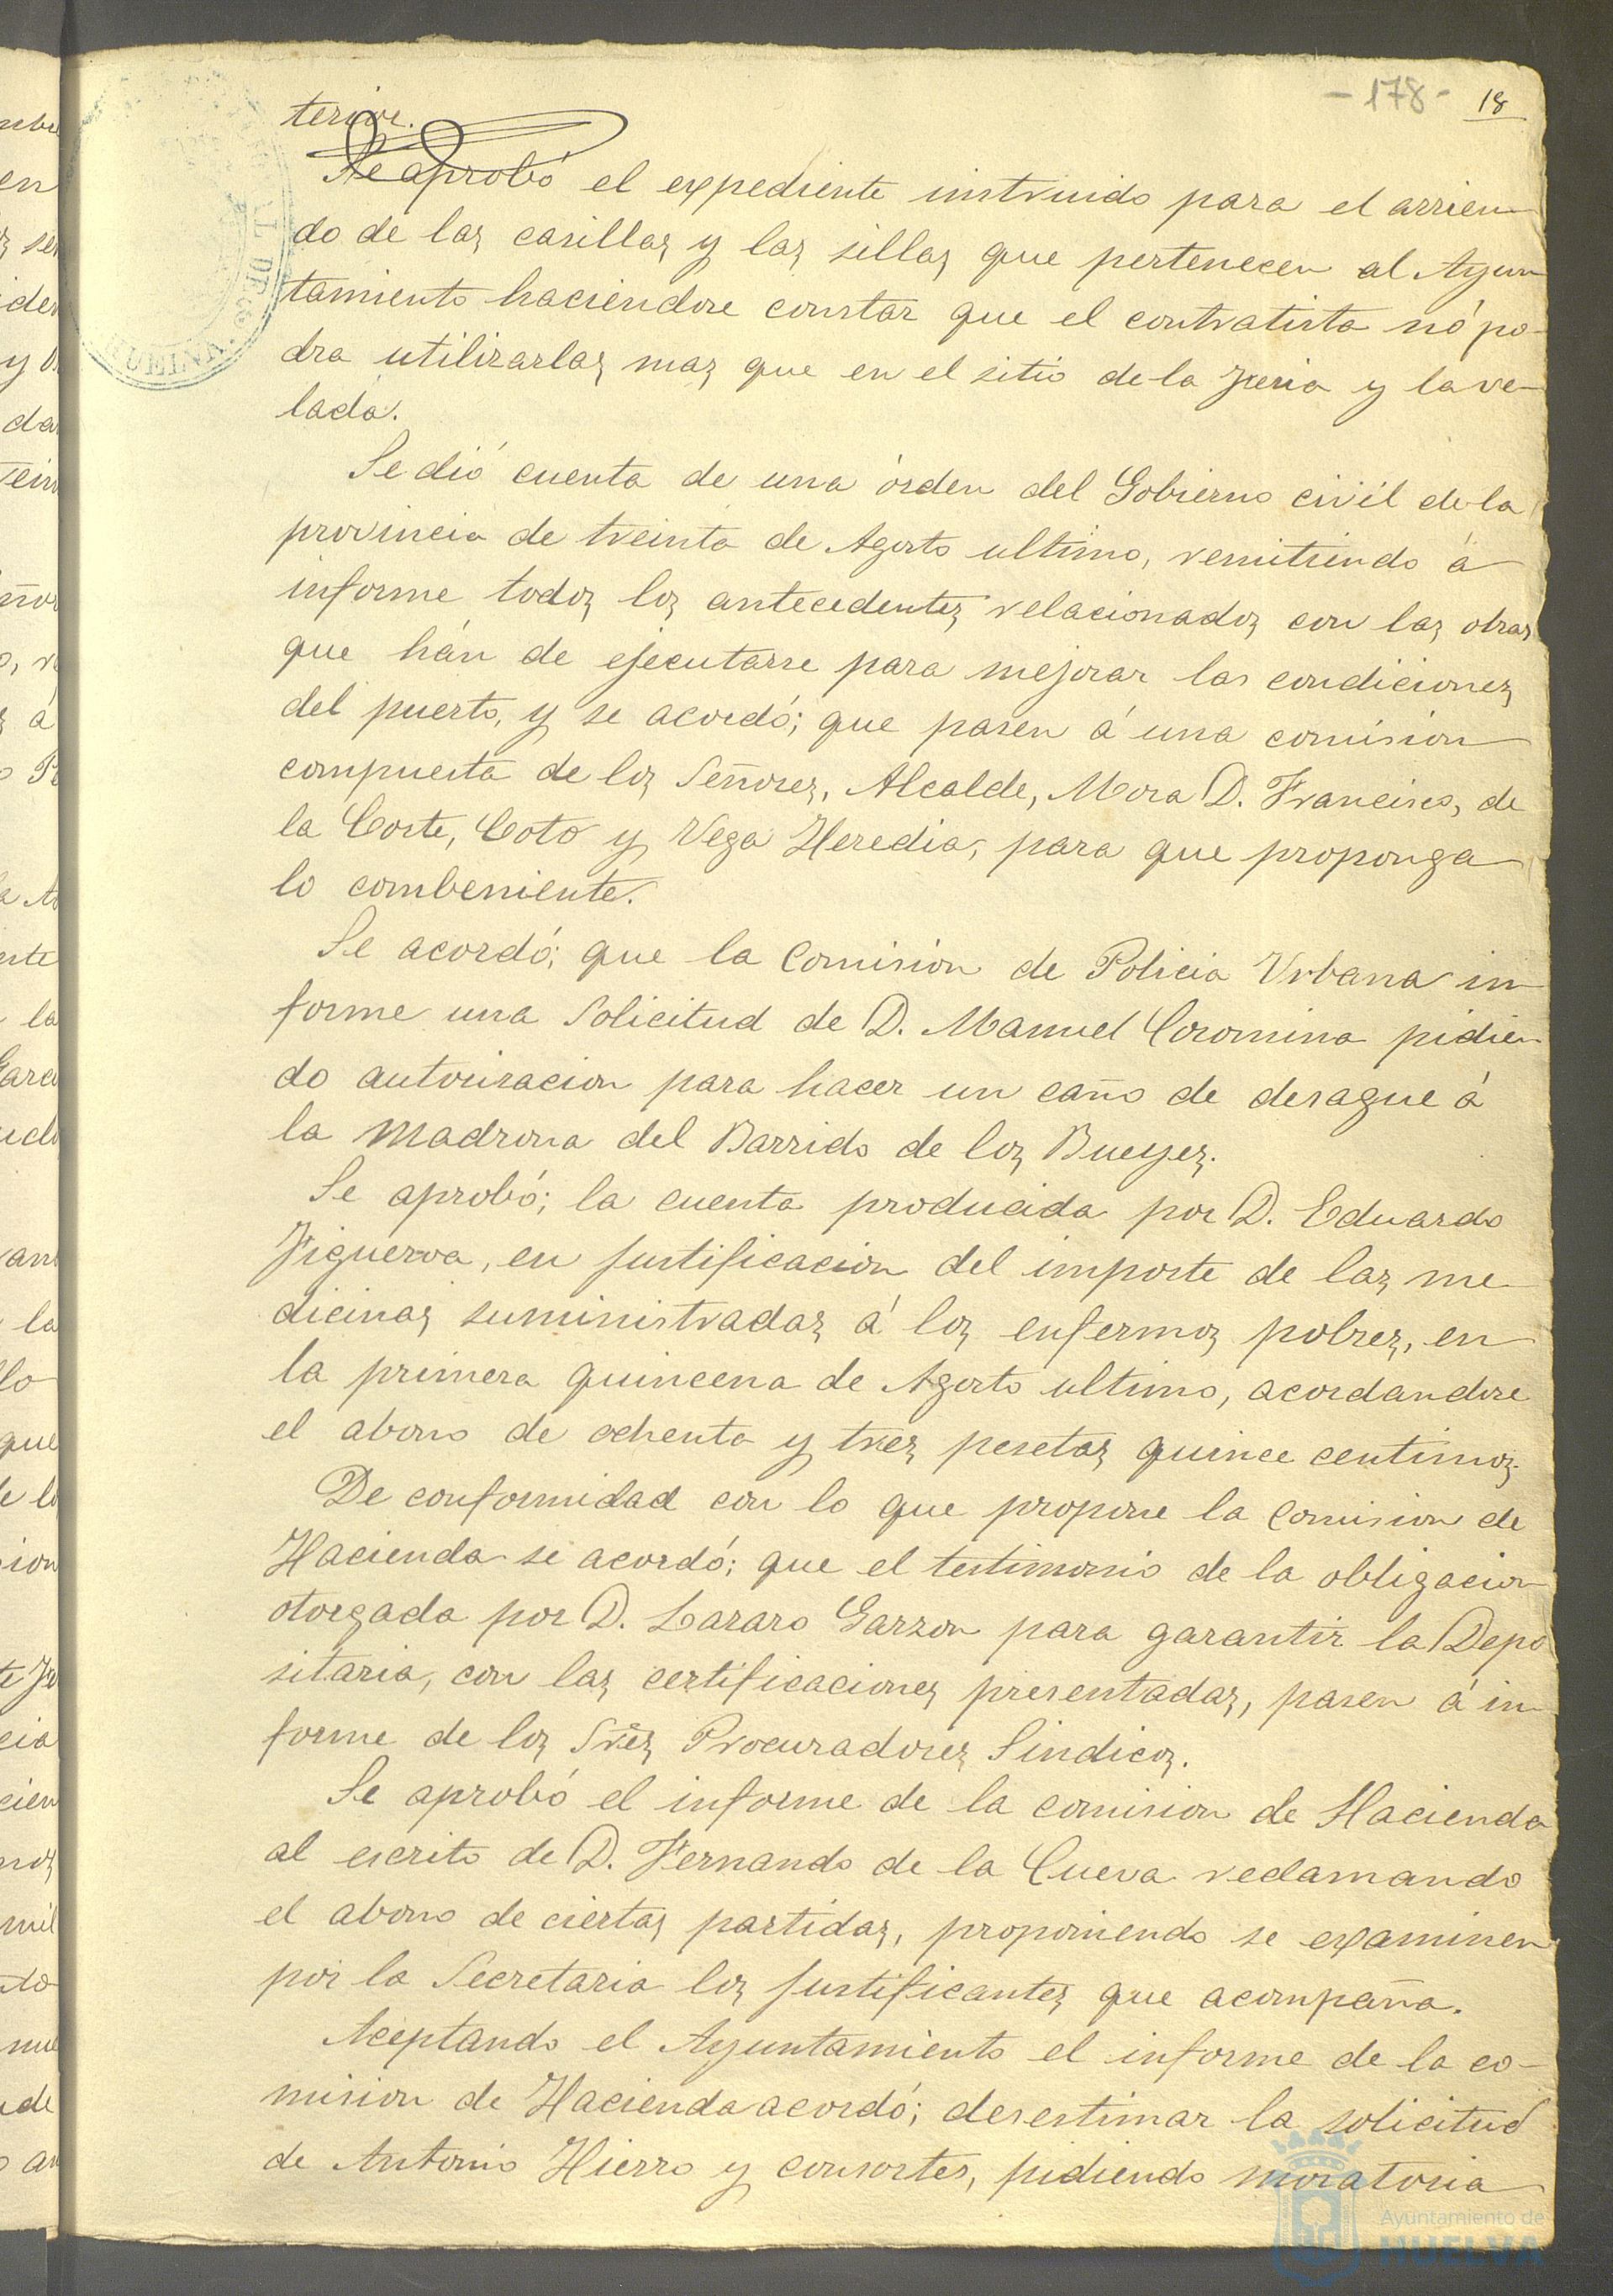 - 178 -
18
terior.
Se aprobó el expediente instruido para el arrien-
do de las casillas y las sillas que pertenecen al Ayun
tamiento haciendose constar que el contratista nó po-
dra utilizarlas mas que en el sitio de la Feria y la ve-
lada.
Se dió cuenta de una órden del Gobierno civil de la
provincia de treinta de Agosto ultimo, remitiendo á
informe todos los antecedentes relacionados con las obras
que hán de ejecutarse para mejorar las condiciones
del puerto, y se acordó; que pasen á una comision
compuesta de los Señores, Alcalde, Mora D. Francisco, de
la Corte, Coto y Vega Heredia, para que proponga
lo combeniente.
Se acordó; que la Comision de Policia Urbana in-
forme una solicitud de D. Manuel Coromina pidien-
do autorisacion para hacer un caño de desague á
la Madrona del Barrido de los Bueyes.
Se aprobó; la cuenta producida por D. Eduardo
Figueroa, en justificacion del importe de las me-
dicinas suministradas á los enfermos pobres, en
la primera quincena de Agosto ultimo, acordandose
el abono de ochenta y tres pesetas quince centimos.
De conformidad con lo que propone la Comision de
Hacienda se acordó; que el testimonio de la obligacion
otorgada por D. Lazaro Garzon para garantir la Depo
sitaria, con las certificaciones presentadas, pasen á in-
forme de los Sres Procuradores Sindicos.
Se aprobó el informe de la comision de Hacienda
al escrito de D. Fernando de la Cueva reclamando
el abono de ciertas partidas, proponiendo se examinen
por la Secretaria los justificantes que acompaña.
Aceptando el Ayuntamiento el informe de la co-
mision de Hacienda acordó; desestimar la solicitud
de Antonio Hierro y consortes, pidiendo moratoria
Ayuntamiento de
HUELVA